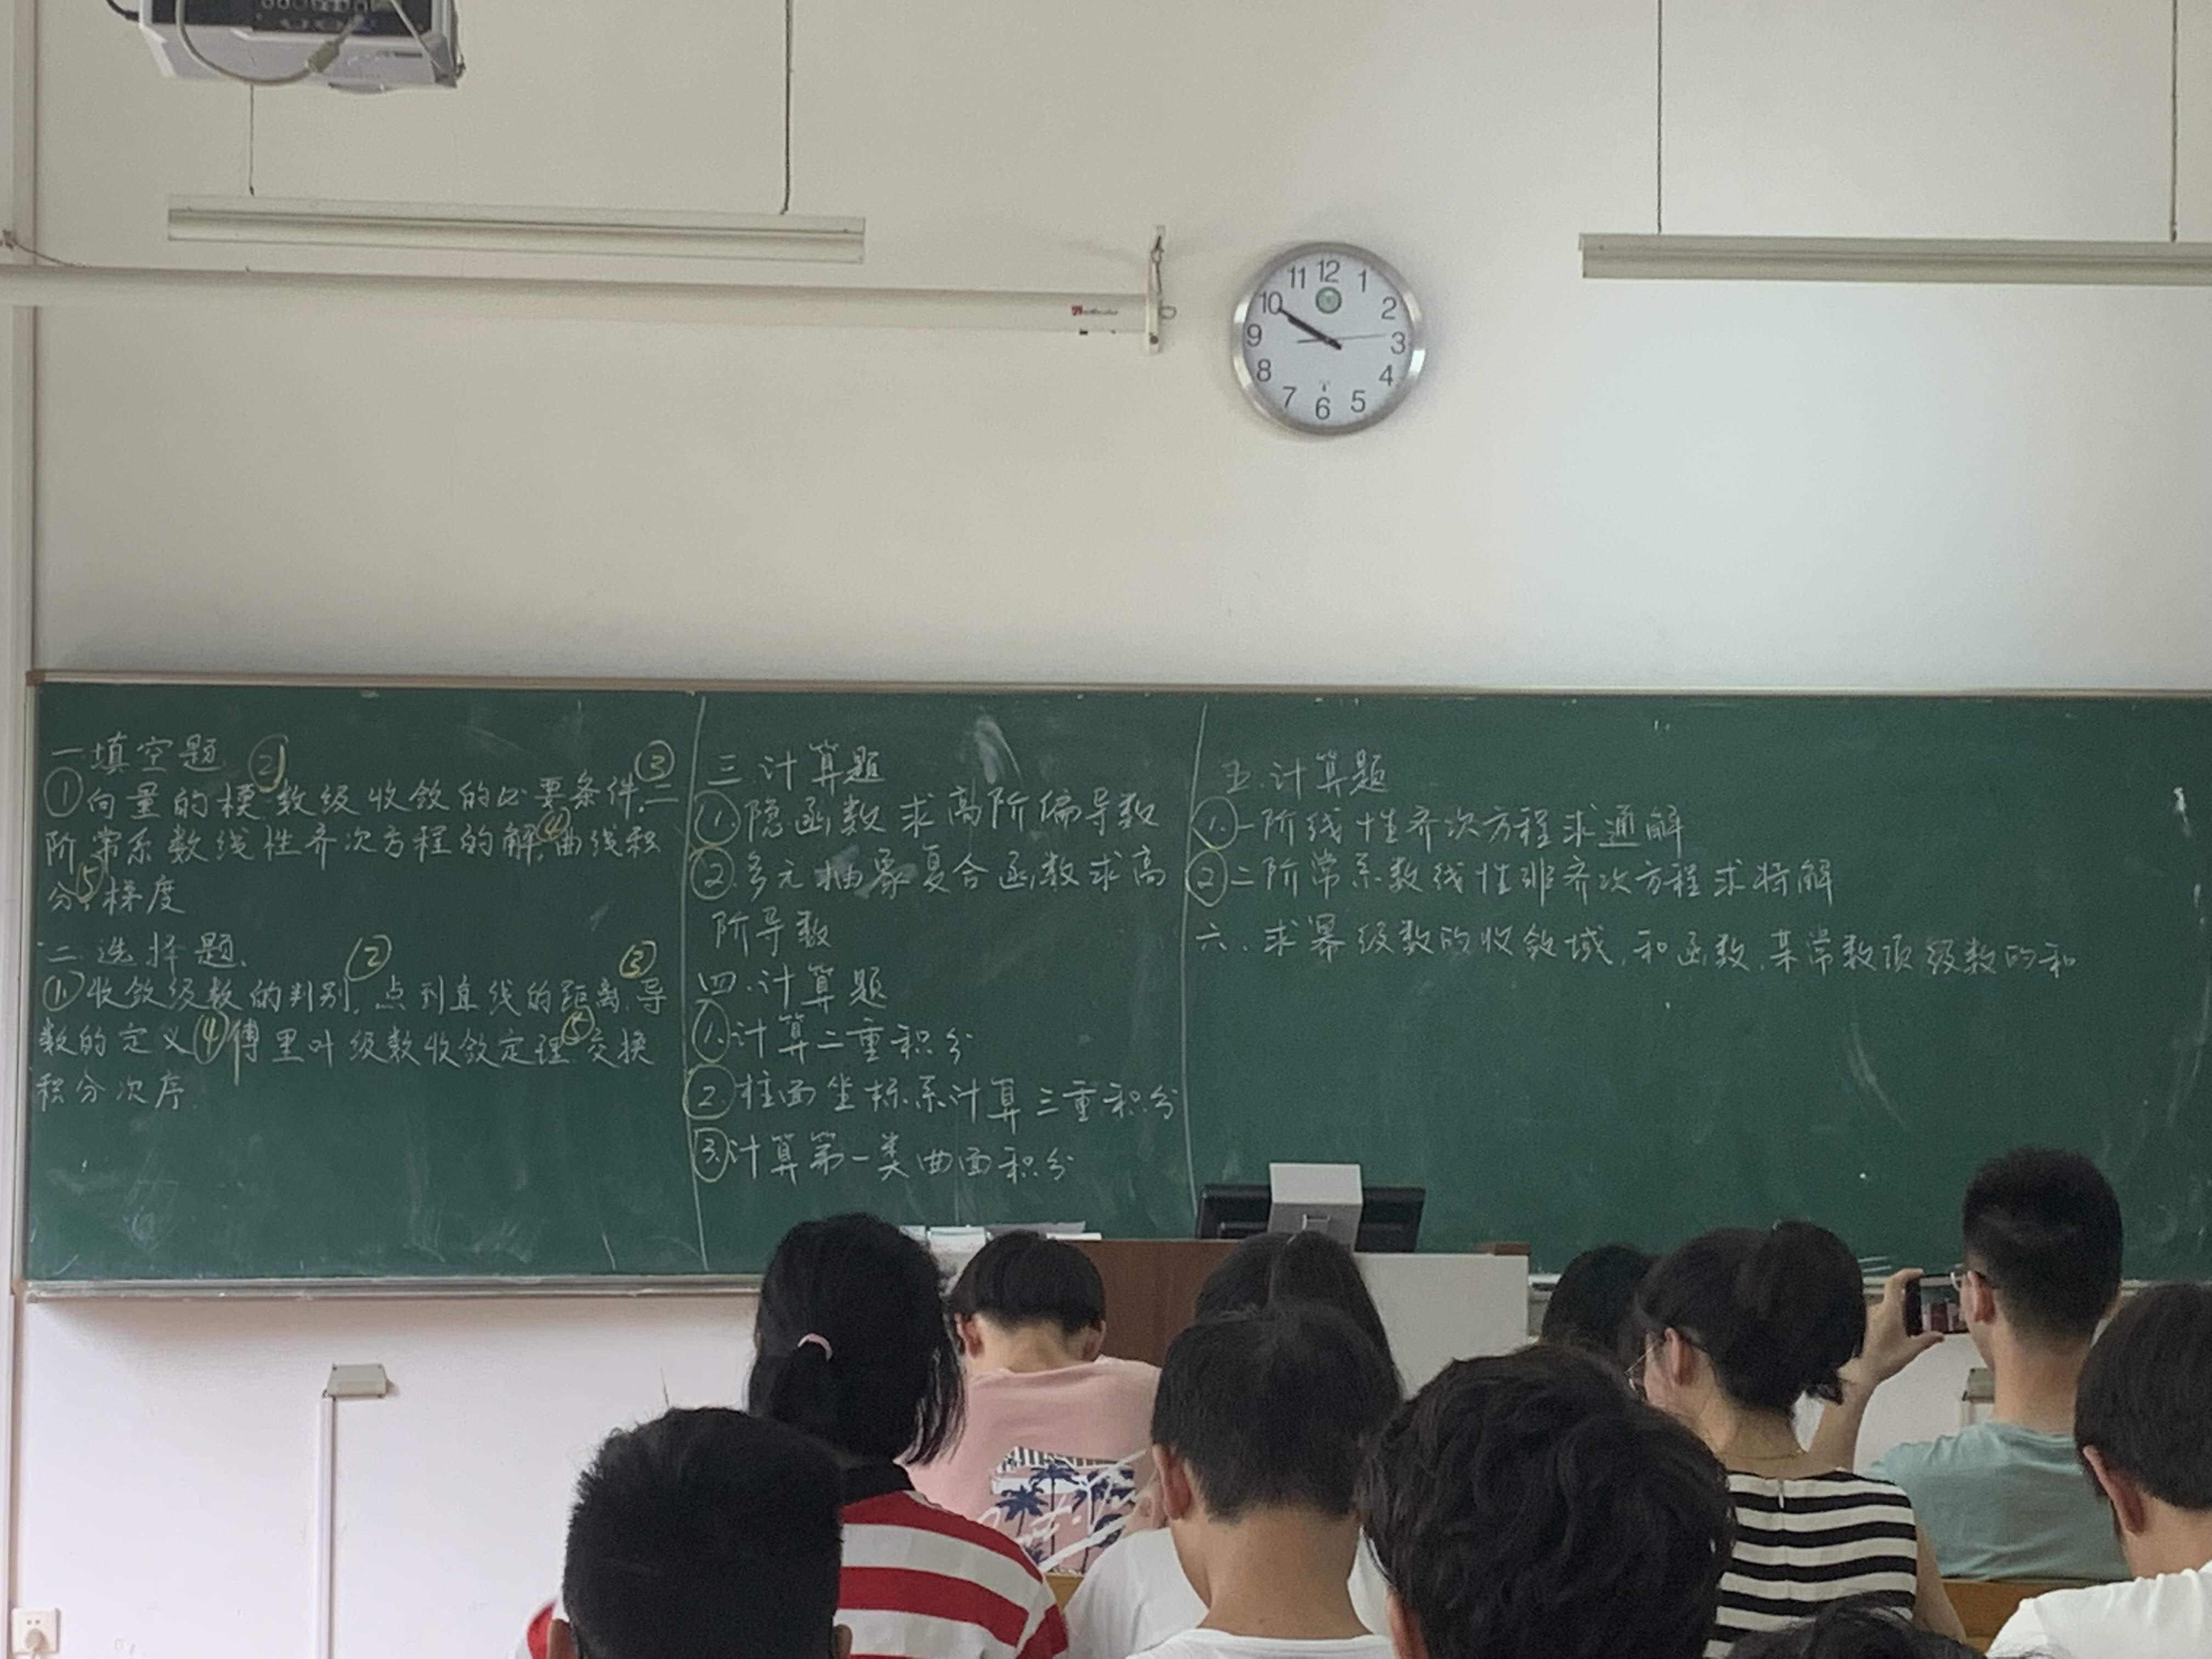 一.填空题
①向量的模,②数级收敛的必要条件,③二
阶常系数线性齐次方程的解,④曲线积
分,⑤梯度
二.选择题.
①.收敛级数的判别,②点到直线的距离,③导
数的定义④傅里叶级数收敛定理⑤交换
积分次序.
三.计算题
①.隐函数求高阶偏导数
②.多元抽象复合函数求高
阶导数
四.计算题
①.计算二重积分
②.柱面坐标系计算三重积分
③.计算第一类曲面积分
五.计算题
①.一阶线性齐次方程求通解
②.二阶常系数线性非齐次方程求特解
六.求幂级数的收敛域,和函数,某常数项级数的和
12
1
2
3
4
5
6
7
8
9
10
11